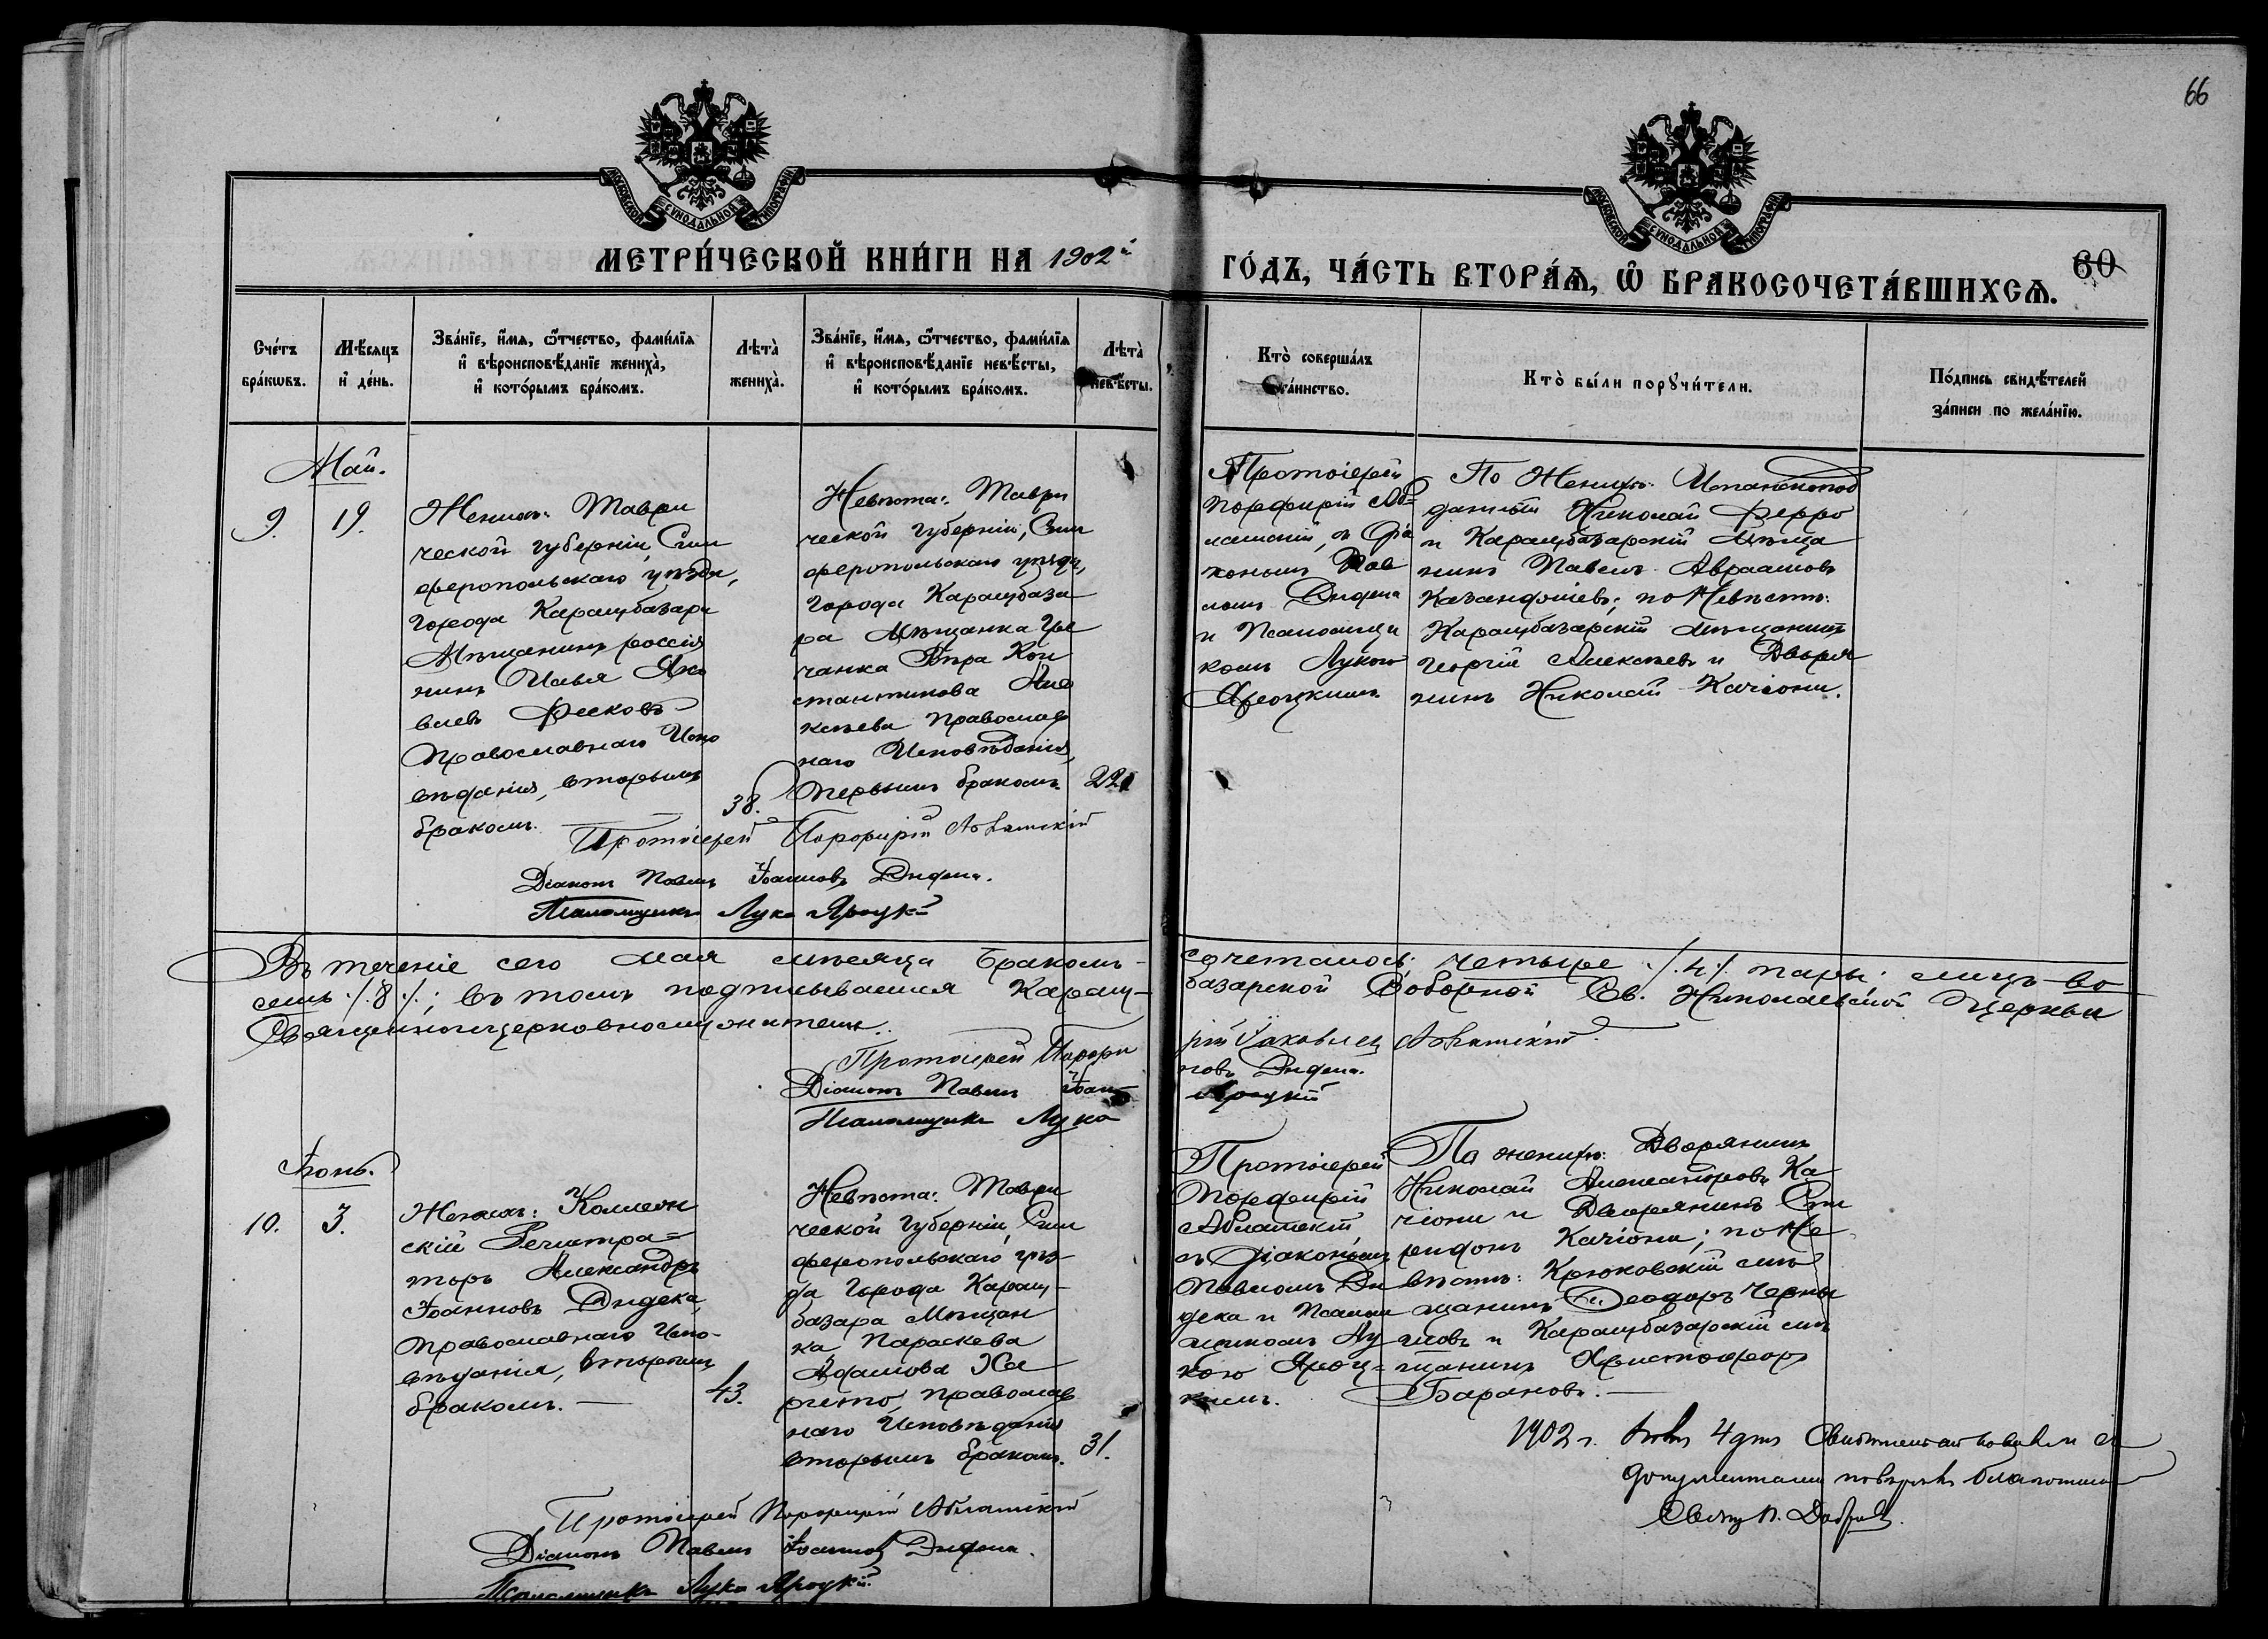 66
МОСКОВСКОЙ СУНОДАЛЬНОЙ ТИПОГРАФІИ
МОСКОВСКОЙ СУНОДАЛЬНОЙ ТИПОГРАФІИ
МЕТРИ́ЧЕСКОЙ КНИ́ГИ НА 1902й
ГО́ДЪ, ЧА́СТЬ ВТОРА́Ѧ, Ѽ БРАКОСОЧЕТА́ВШИХСѦ.
60
Сче́тъ
бра́кѡвъ.
Мѣ́сяцъ
и҆ де́нь.
Зва́нїе, и҆́мя, ѻ҆́тчество, фами́лїя
и҆ вѣроисповѣ́данїе жениха̀,
и҆ кото́рымъ бра́комъ.
Лѣта̀
жениха̀.
Зва́нїе, и҆́мя, ѻ҆́тчество, фами́лїя
и҆ вѣроисповѣ́данїе невѣ́сты,
и҆ кото́рымъ бра́комъ.
Лѣта̀
невѣ́сты.
Кто̀ соверша́лъ
та́инство.
Кто̀ бы́ли порꙋчи́тели.
По́дпись свидѣ́телей
за́писи по жела́нїю.
Май.
9.
19.
Женихъ: Таври
ческой губерніи, Сим
феропольскаго уѣзда,
города Карасубазара
Мѣщанинъ россія
нинъ Илья Яко
влевъ Фесковъ
Православнаго Испо
вѣданія, вторымъ
бракомъ.
38.
Невѣста: Таври
ческой губерніи, Сим
феропольскаго уѣзда,
города Карасубаза
ра Мѣщанка Гре
чанка Вѣра Кон
стантинова Але
ксѣева Православ
наго Исповѣданія,
первымъ бракомъ.
22
Протоіерей
Порфирій Аб=
ламскій, съ Діа
кономъ Пав
ломъ Дидека
и Псаломщи
комъ Лукою
Яроцкимъ
По Женихѣ: Испанскопод
данный Николай Ферро
и Карасубазарскій Мѣща
нинъ Павелъ Авраамовъ
по Невѣстѣ:
Карасубазарскій мѣщанинъ
Георгій Алексѣевъ и Дворя
нинъ Николай Качіони.
Протоіерей Порфирій Абламскій
Діаконъ Павелъ Іоанновъ Дидека.
Псаломщикъ Лука Яроцкій
Въ теченіе сего мая мѣсяца бракомъ сочеталось: четыре ./.4./. пары; лицъ во
семь ./.8./.; въ томъ подписываемся Карасу-базарской Соборной Св. Николаевской Церкви
Священноцерковнослужители.
Протоіерей Порфирій Іаковлевъ Абламскій.
Діаконъ Павелъ Іоанновъ Дидека.
Псаломщикъ Лука Яроцкій
Іюнь.
10.
3.
Женихъ: Коллеж
скій Регистра=
торъ Александръ
Іоанновъ Дидека,
Православнаго Испо-
вѣданія, вторымъ
бракомъ.
43.
Невѣста: Таври
ческой губерніи, Сим
феропольскаго уѣз-
да города Карасу-
базара Мѣщан
ка Параскева
Адамова
Православ
наго Исповѣданія
вторымъ бракомъ.
31.
Протоіерей
Порфирій
Абламскій,
съ Діакономъ
Павломъ Ди
дека и Псалом
щикомъ Лу
кою Яроц=
кимъ.
По женихѣ: Дворянинъ
Николай Александровъ Ка
чіони и Дворянинъ Спи
ридонъ Качіони; по Не
вѣстѣ: Крюковскій мѣ
щанинъ Ѳеодоръ Черны
шовъ и Карасубазарскій мѣ
щанинъ Христофоръ
Барановъ.
Протоіерей Порфирій Абламскій
Діаконъ Павелъ Іоанновъ Дидека.
Псаломщикъ Лука Яроцкій.
1902 г. 4 дня
документами